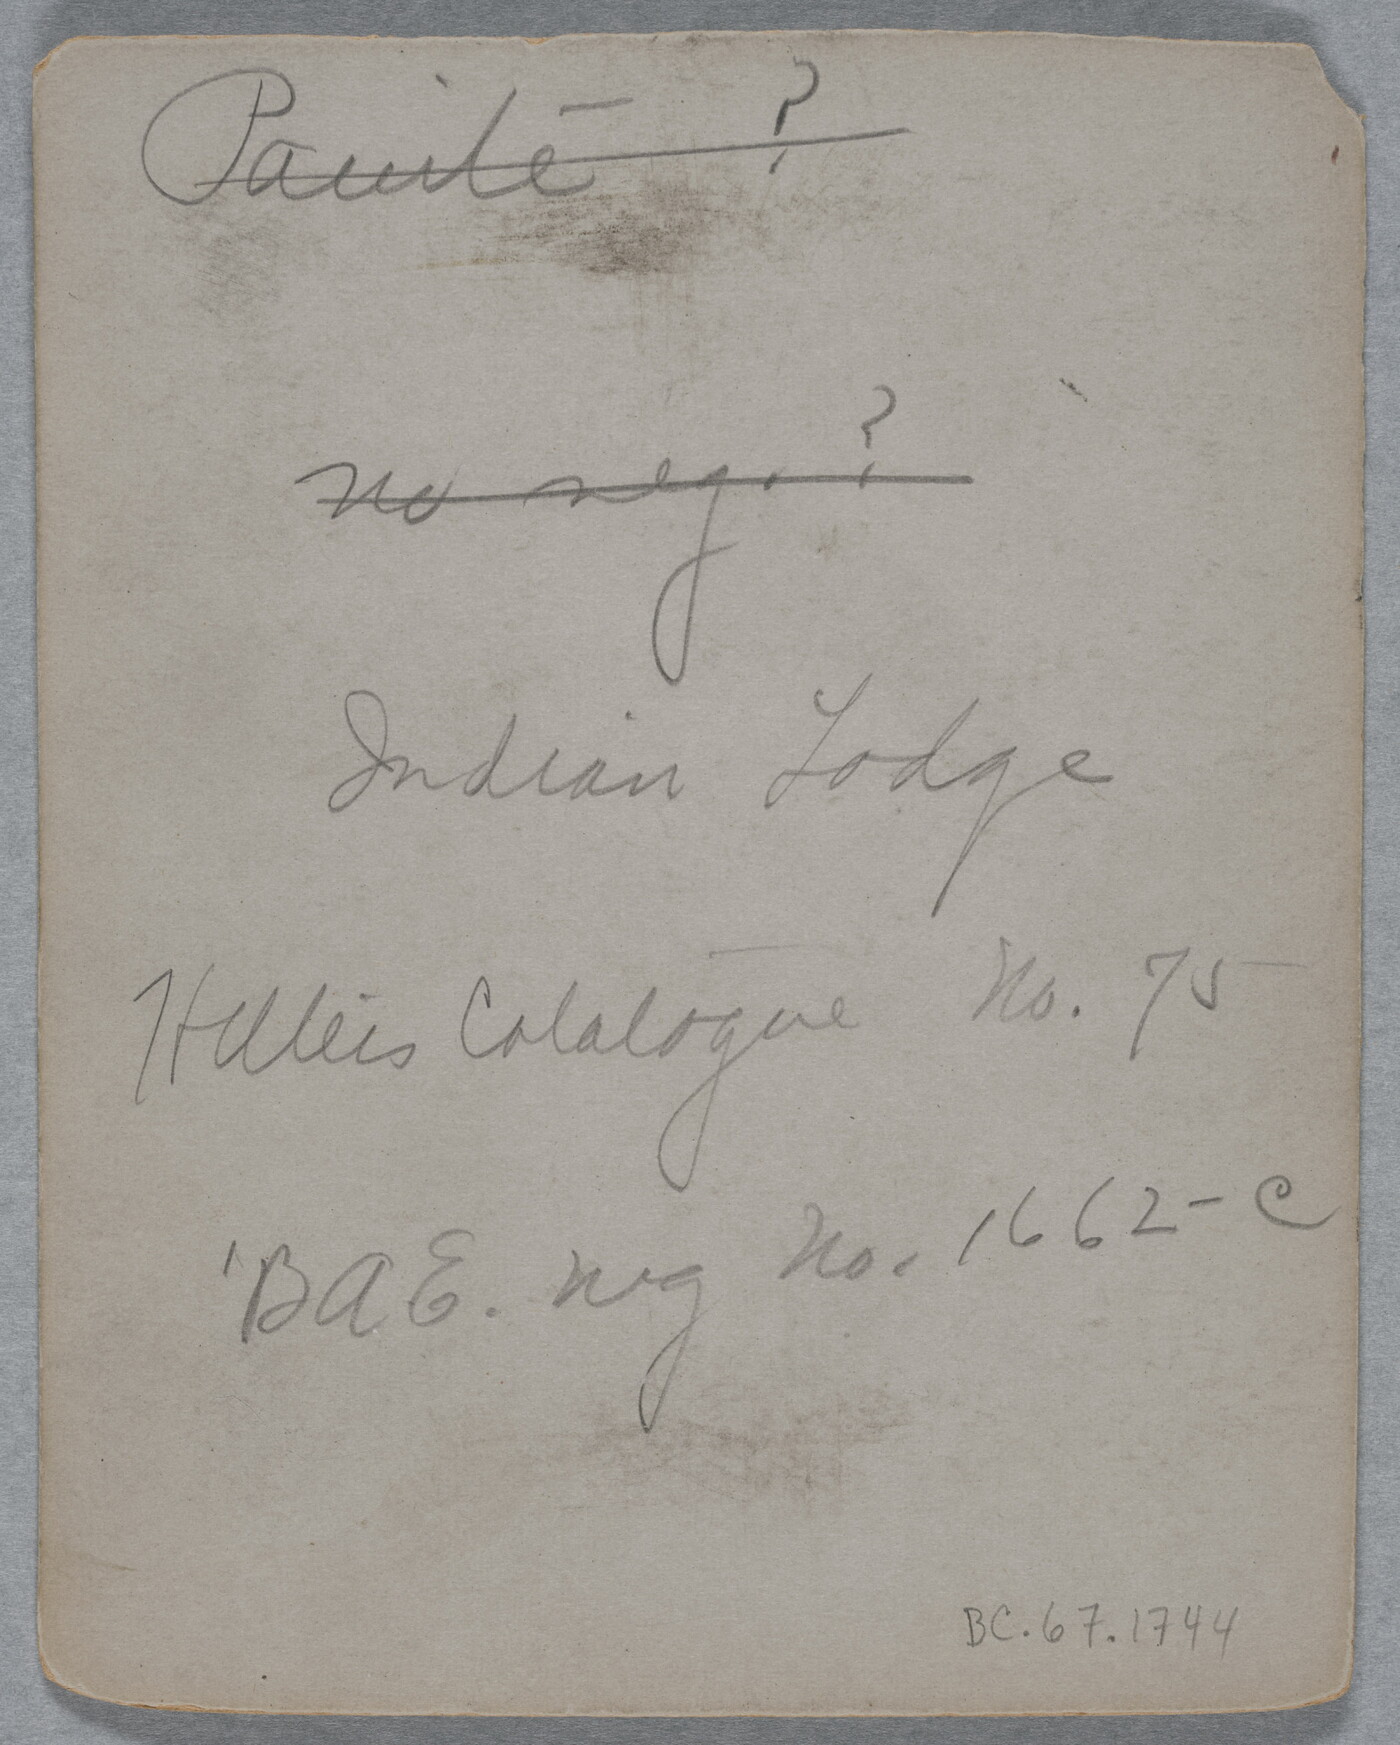 Pauite ?
no neg. ?
Indian Lodge
Hillers Catalogue No. 75
BAE. neg No. 1662-C
BC.67.1744